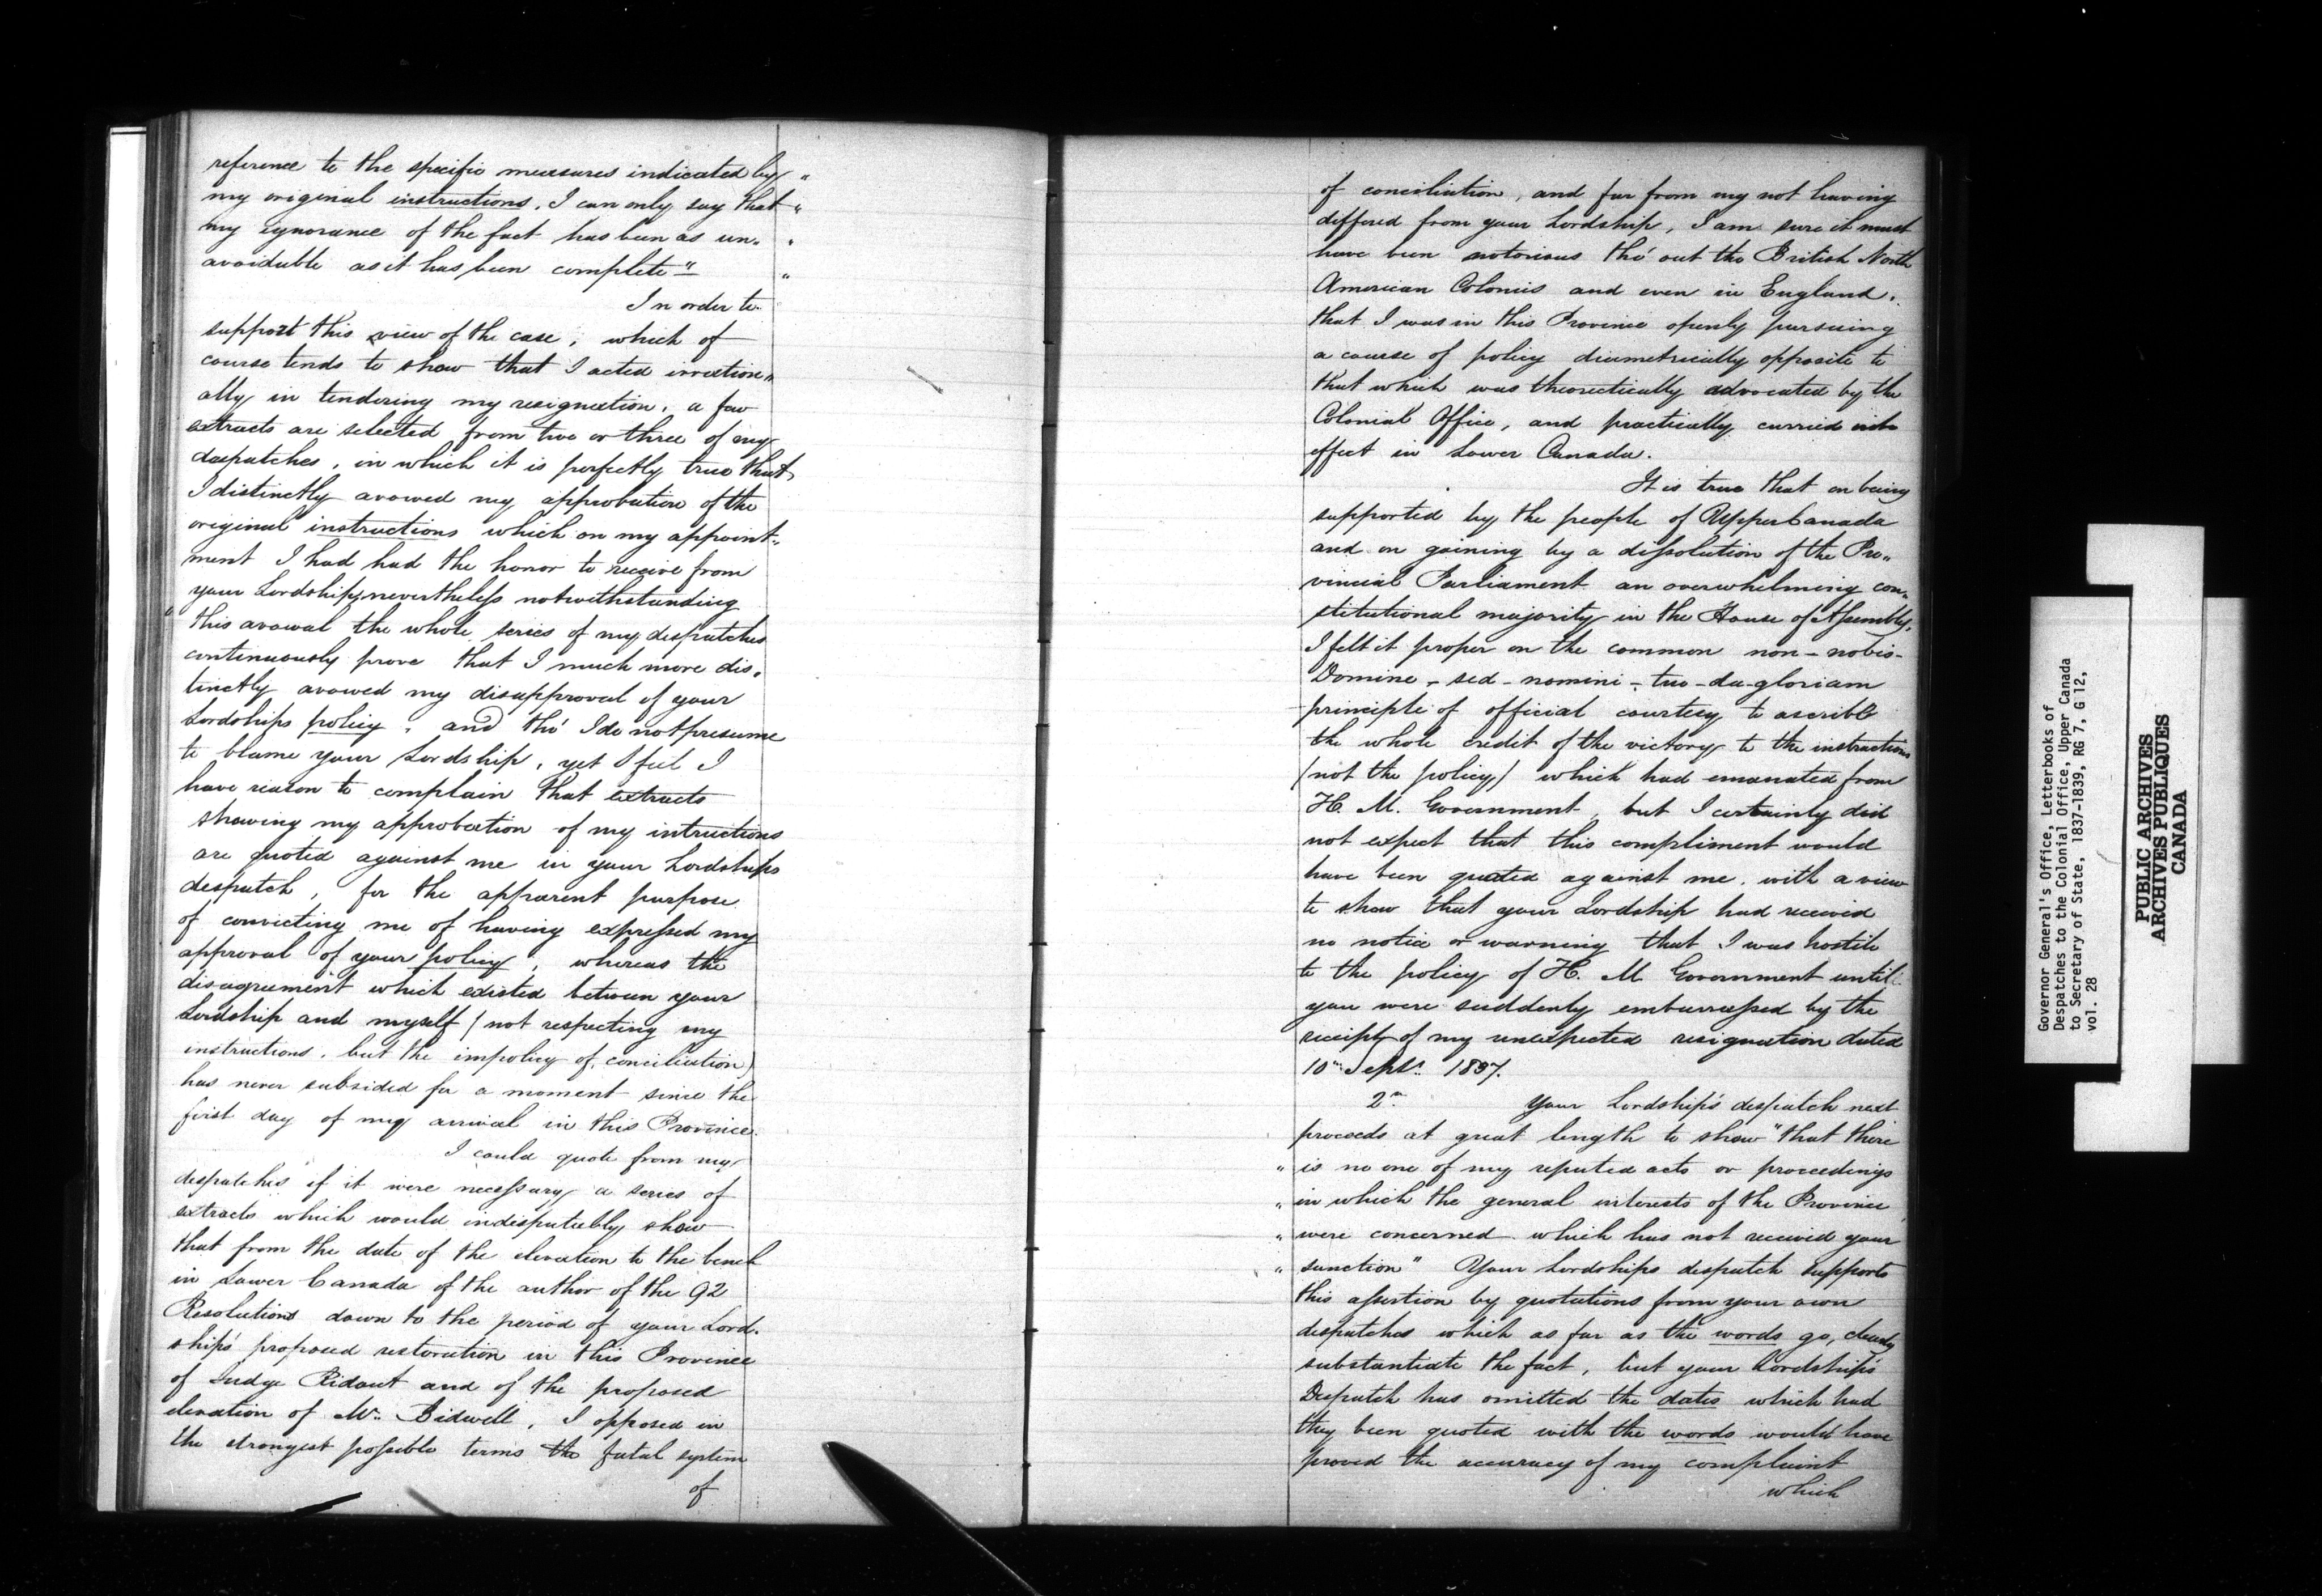 reference to the specific measures indicated by "
my original instructions, I can only say that "
my ignorance of the fact has been as un- "
avoidable as it has been complete" "
In order to
support this view of the case, which of
course tends to show that I acted irration"
ally in tendering my resignation, a few
extracts are selected from two or three of my
despatches, in which it is perfectly true that
I distinctly avowed my approbation of the
original instructions which on my appoint"
ment I had had the honor to receive from
your Lordship, nevertheless notwithstanding
this avowal the whole series of my despatches
continuously prove that I much more dis-
tinctly avowed my disapproval of your
Lordships policy, and tho' I do not presume
to blame your Lordship, yet I feel I
have reason to complain that extracts
showing my approbation of my intructions
are quoted against me in your Lordships
despatch, for the apparent purpose
of convicting me of having expressed my
approval of your policy, whereas the
disagreement which existed between your
Lordship and myself (not respecting my
instructions, but the impolicy of conciliation)
has never subsided for a moment since the
first day of my arrival in this Province.
I could quote from my
despatches if it were necessary a series of
extracts which would indisputably show
that from the date of the elevation to the bench
in Lower Canada of the author of the 92
Resolutions down to the period of your Lord-
ship's proposed restoration in this Province
of Judge Ridout and of the proposed
elevation of Mr. Bidwell, I opposed in
the strongest possible terms the fatal system
of
of conciliation, and far from my not having
differed from your Lordship, I am sure it must
have been notorious tho' out the British North
American Colonies and even in England,
that I was in this Province openly pursuing
a course of policy diametrically opposite to
that which was theorectically advocated by the
Colonial Office, and practically carried into
effect in Lower Canada.
It is true that on being
supported by the people of Upper Canada
and on gaining by a dissolution of the Pro"
vincial Parliament an overwhelming con"
stitutional majority in the House of Assembly,
I felt it proper on the common non-nobis-
Domine-sed-nomini-tuo-da-gloriam
principle of official courtesy to ascribe
the whole credit of the victory to the instructions
(not the policy) which had emanated from
H. M. Government, but I certainly did
not expect that this compliment would
have been quoted against me, with a view
to show that your Lordship had received
no notice or warning that I was hostile
to the policy of H. M Government until
you were suddenly embarrassed by the
receipt of my unexpected resignation dated
10th Sept. 1837.
2nd Your Lordship's despatch next
proceeds at great length to show "that there
" is no one of my reputed acts or proceedings
" in which the general interests of the Province
" were concerned which has not received your
" sanction" Your Lordships despatch supports
this assertion by quotations from your own
despatches which as far as the words go, clearly
substantiate the fact, but your Lordship's
Despatch has omitted the dates which had
they been quoted with the words would have
proved the accuracy of my complaint
which
Governor General's Office, Letterbooks of
Despatches to the Colonial Office, Upper Canada
to Secretary of State, 1837-1839, RG 7, G 12,
vol. 28
PUBLIC ARCHIVES
ARCHIVES PUBLIQUES
CANADA